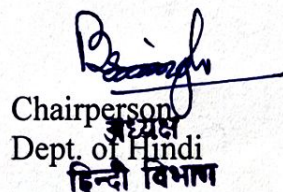 Chairperson
अध्यक्ष
Dept. of Hindi
हिन्दी विभाग